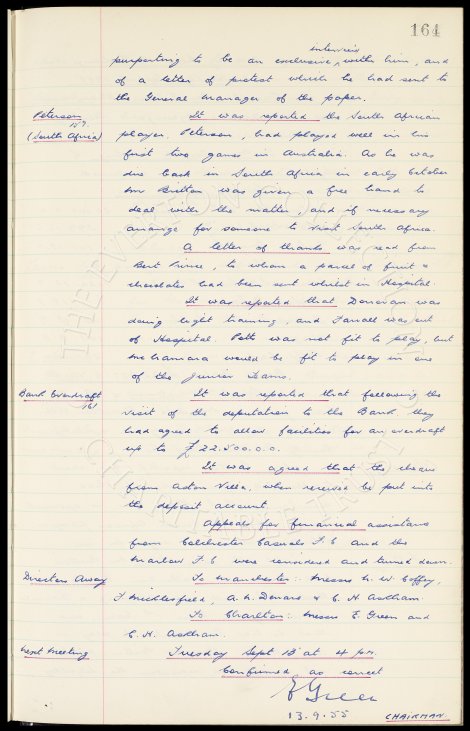 164
purporting to be an exclusive interview with him, and
of a letter of protest which he had sent to
the General Manager of the paper.
Peterson
157
(South Africa)
It was reported the South African
player, Peterson, had played well in his
first two games in Australia. As he was
due back in South Africa in early October
Mr Britton was given a free hand to
deal with the matter, and if necessary
arrange for someone to visit South Africa.
A letter of thanks was read from
Bert Prince, to whom a parcel of fruit &
chocolates had been sent whilst in Hospital.
It was reported that Donovan was
doing light training, and Farrall was out
of Hospital. Potts was not fit to play, but
McNamara would be fit to play in one
of the Junior Teams.
Bank Overdraft
161
It was reported that following the
visit of the deputation to the Bank they
had agreed to allow facilities for an overdraft
up to £22.500.0.0.
It was agreed that the cheque
from Aston Villa, when received be put into
the deposit account.
Appeals for financial assistance
from Colchester Casuals F.C and the
Marlow F.C were considered and turned down.
Directors Away
To Manchester: Messrs N. W. Coffey,
F Micklesfield, A. L. Denaro & C. H. Askham.
To Charlton: Messrs E. Green and
C. H. Askham.
Next Meeting
Tuesday Sept 13 at 4 p.m.
Confirmed as correct
E Green
13.9.55
CHAIRMAN.
THE EVERTON
CHARITABLE TRUST